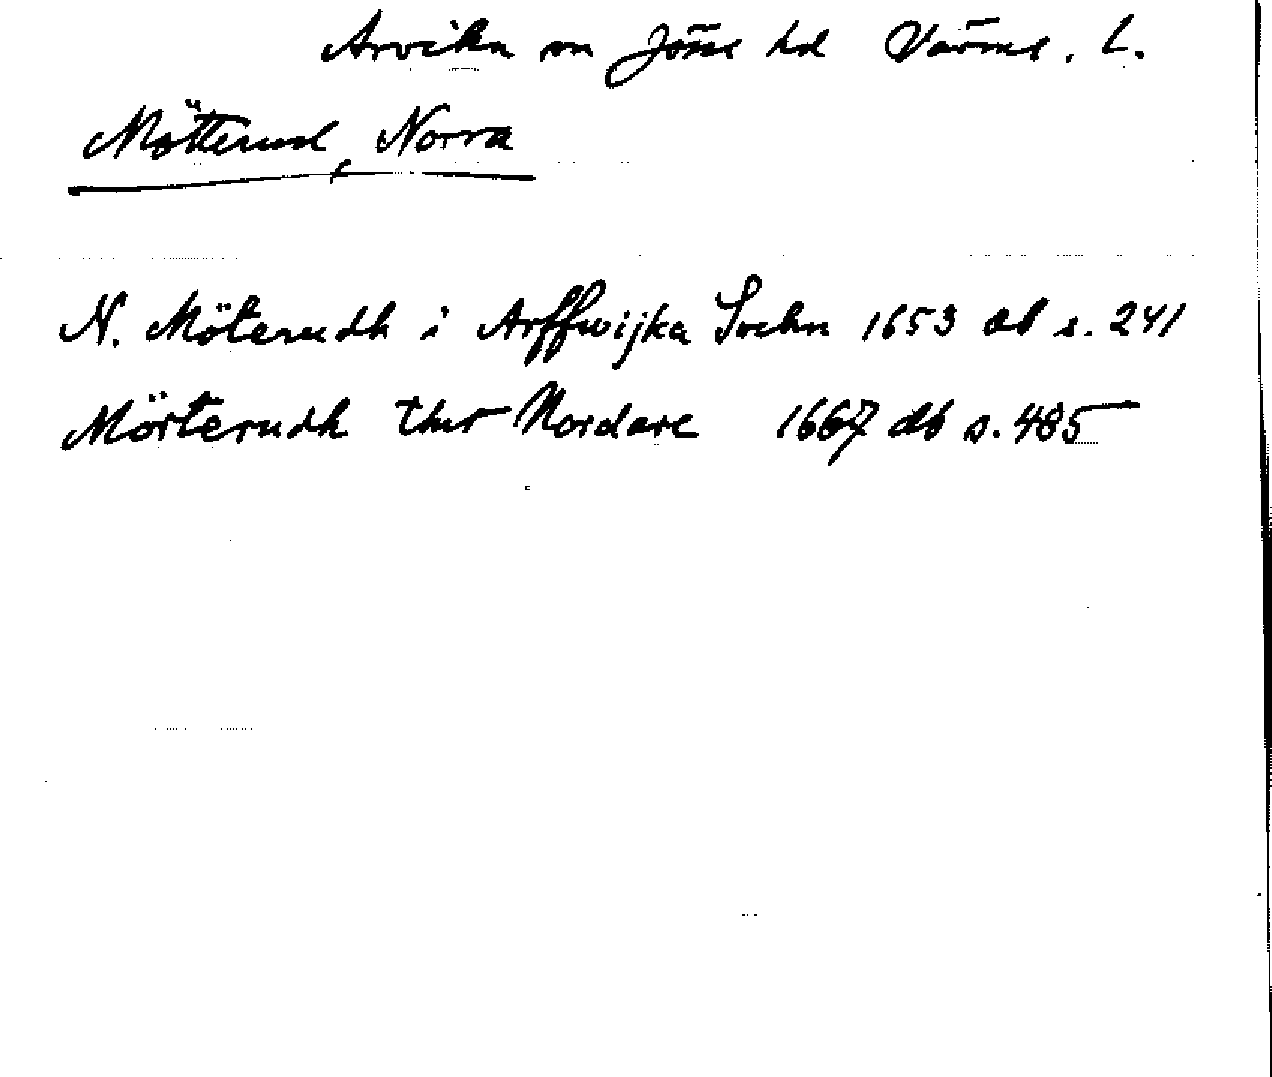 Arvika sn Jösse hd Värml. L.
Mötterud, Norra
N. Möterudh i Arffwijka Sockn 1653 db s. 241
Mörterudh thet Nordare 1667 db s. 485